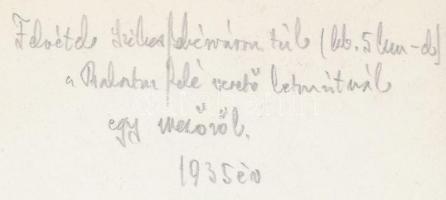 Felvétel Székesfehérváron túl (kb. 5 km-re)
a Balaton felé vezető betonútnál
egy mezőről.
1935 év